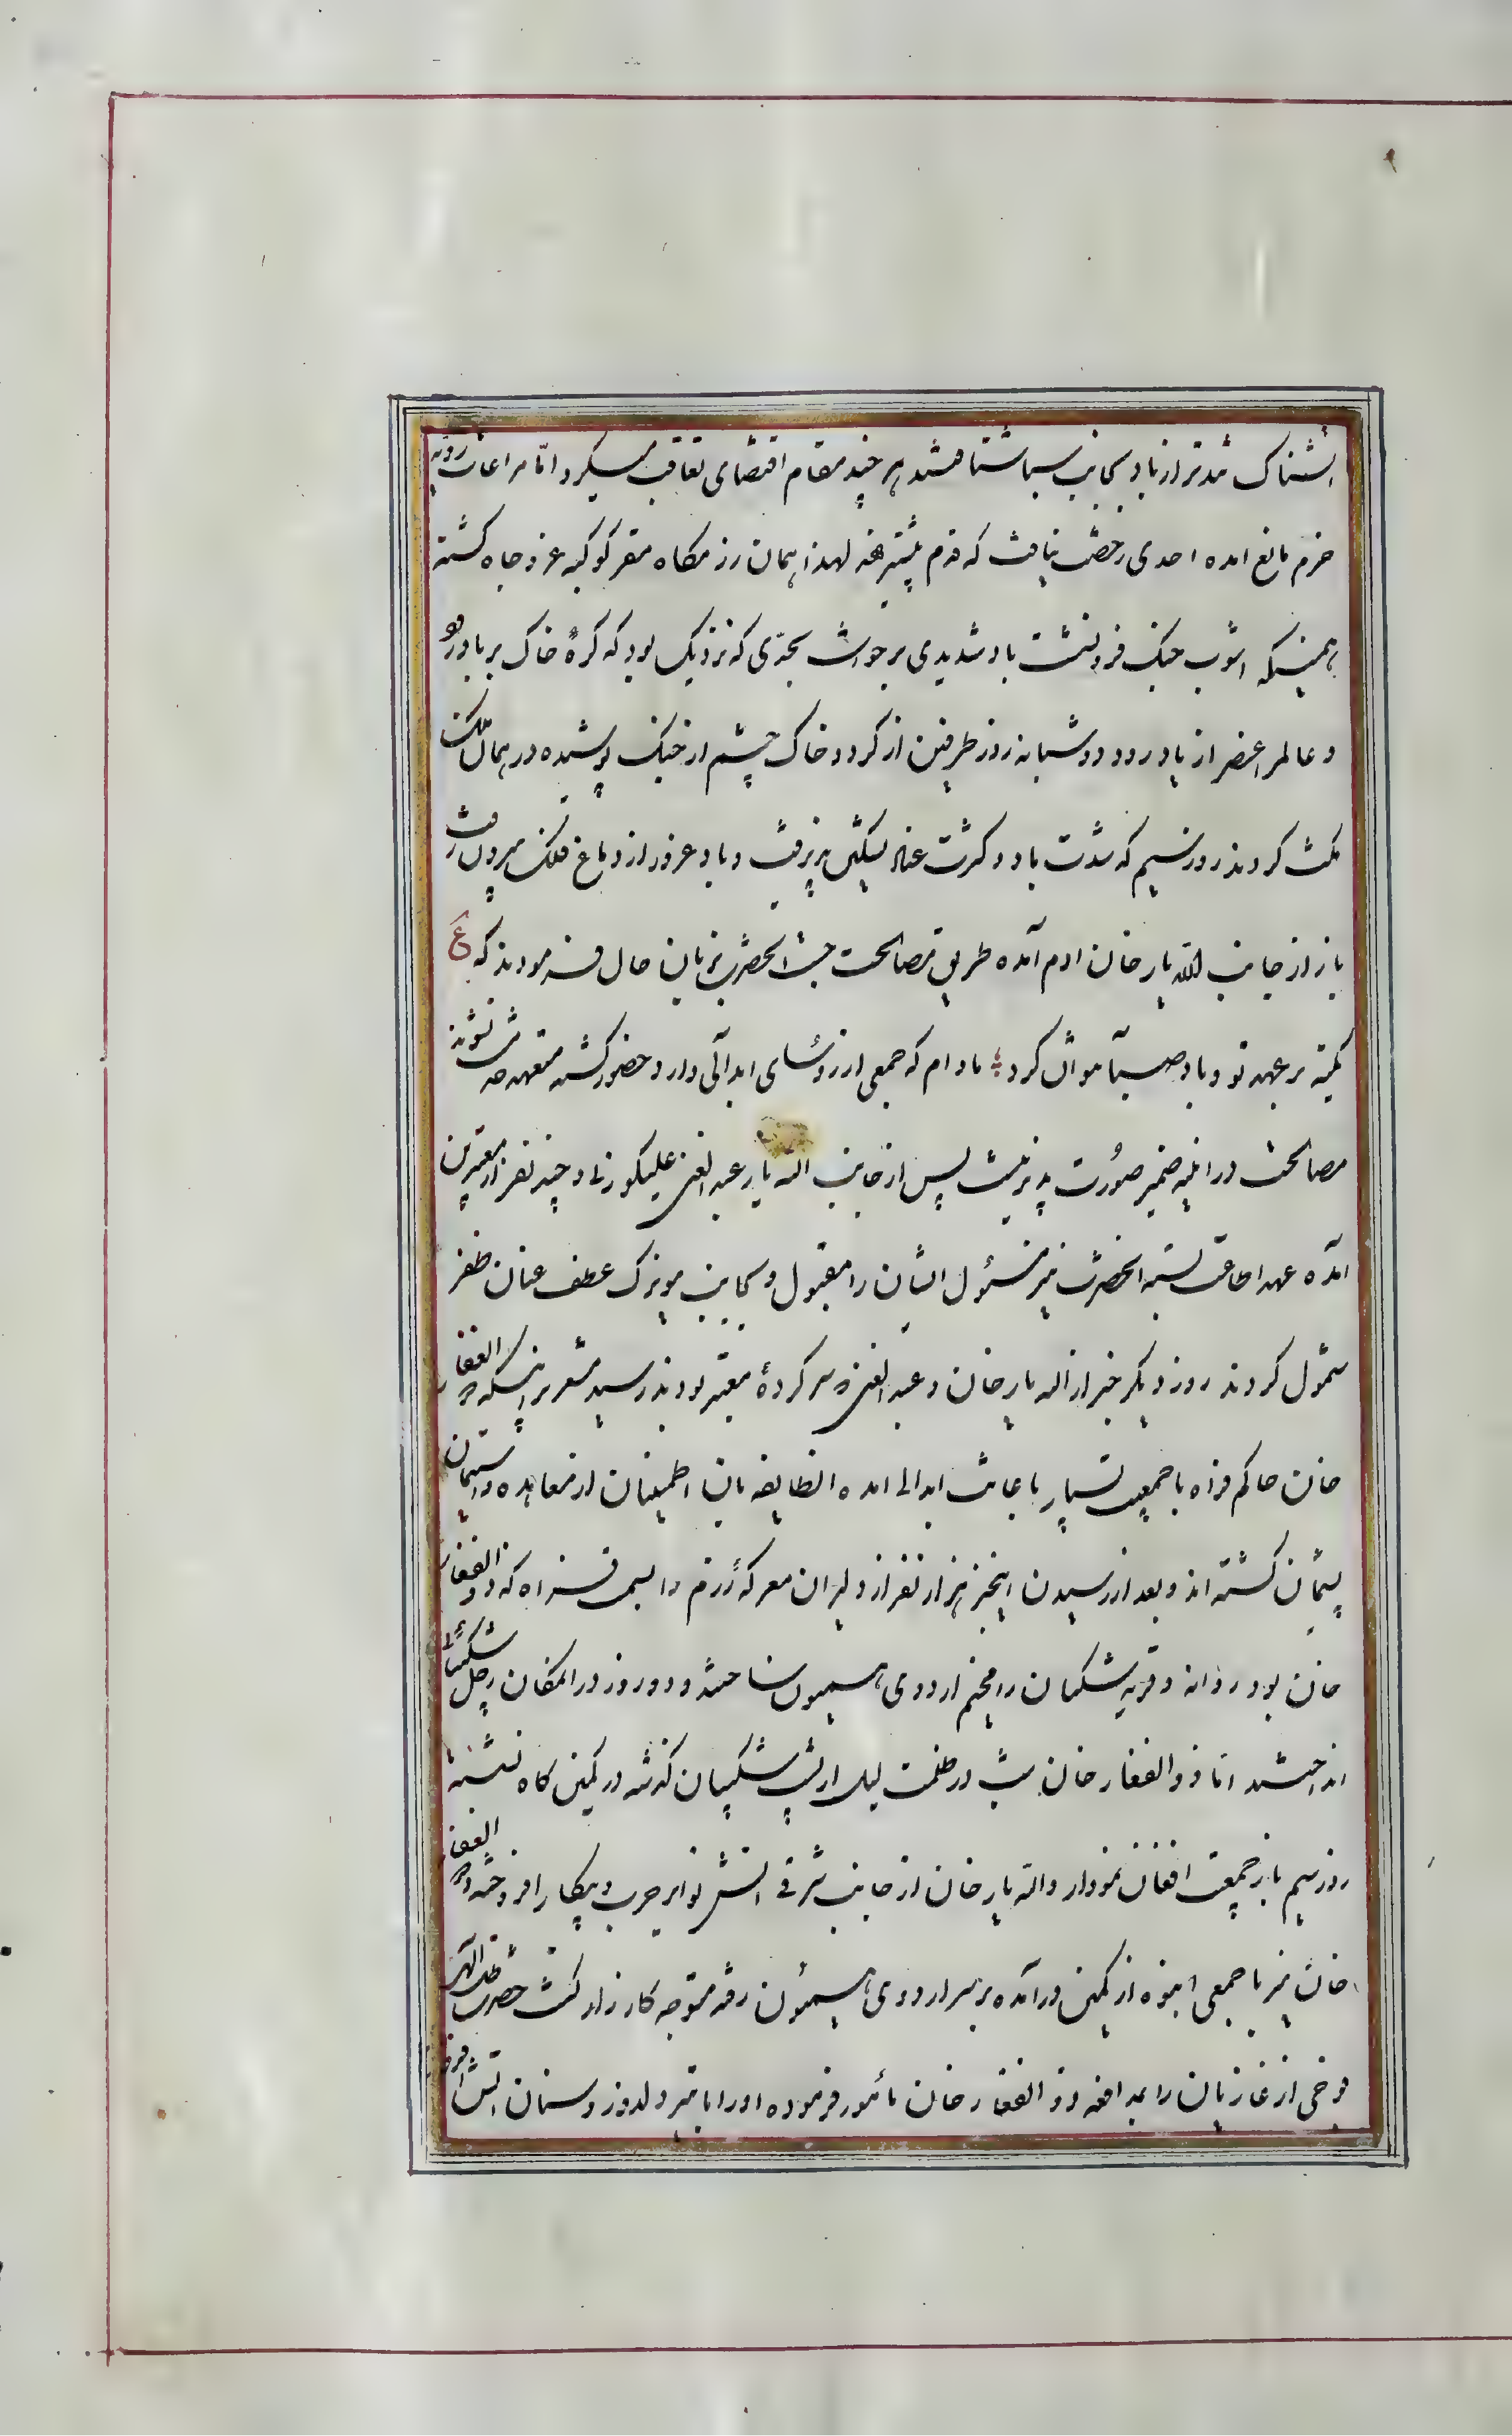 آتشناک تندتر از باد بجانب سما شتافتند هر چند مقام اقتضای تعاقب میکرد اما مراعات رویه
حزم مانع آمده احدی رخصت نیافت که قدم پیشتر نهد لهذا همان رزمگاه مقر کوکبه عز و جاه گشته
همینکه آشوب جنگ فرو نشست باد شدیدی برخواست بحدی که نزدیک بود که کرهٔ خاک بر باد رود
و عالم اغبر از یاد رود دو شبانه روز طرفین از گرد و خاک چشم از جنگ پوشیده در همان مکان
مکث کردند روز سیم که شدت باد و کثرت غبار تسکین پذیرفت و باد غرور از دماغ فلک بیرون رفت
باز از جانب الله یار خان آدم آمده طریق مصالحت جست آنحضرت بزبان حال فرمودند که ع
تکیه بر عهد تو و باد صبا نتوان کرد مادام که جمعی از رؤسای ابدالی وارد حضور گشته متعهد خدمت نشوند
مصالحت در آینه ضمیر صورت پذیر نیست پس از جانب الله یار عبد الغنی علیکوزئی و چند نفر از معتبرین
آمده عهد اطاعت بسته آنحضرت نیز مسئول ایشان را مقبول و بجانب موزک عطف عنان ظفر
شمول کردند روز دیگر خبر از الله یار خان و عبد الغنی که سرکردهٔ معتبر بودند رسید مشعر بر اینکه ذو الفقار
خان حاکم فراه با جمعیت بسیار باعانت ابدالی آمده آنطایفه باین اطمینان از معاهده و استیمان
پشیمان گشته اند و بعد از رسیدن اینخبر هزار نفر از دلیران معرکهٔ رزم را بسمت فراه که ذو الفقار
خان بود روانه و قریه شکیبان را مخیم اردوی همایون ساختند و دو روز در آنمکان رحل شکیبائی
انداختند اما ذو الفقار خان شب در ظلمت لیل از پشت شکیبان گذشته در کمین گاه نشسته
روز سیم باز جمعیت افغان نمودار و الله یار خان از جانب شرقی آتش نوایر حرب و پیکار را افروخته و ذو الفقار
خان نیز با جمعی انبوه از کمین درآمده بر سر اردوی همایون رفته متوجه کارزار گشت حضرت ظل الهی
فوجی از غازیان را بمدافعه ذو الفقار خان مأمور فرموده او را با تیر دلدوز و سنان آتش افروز